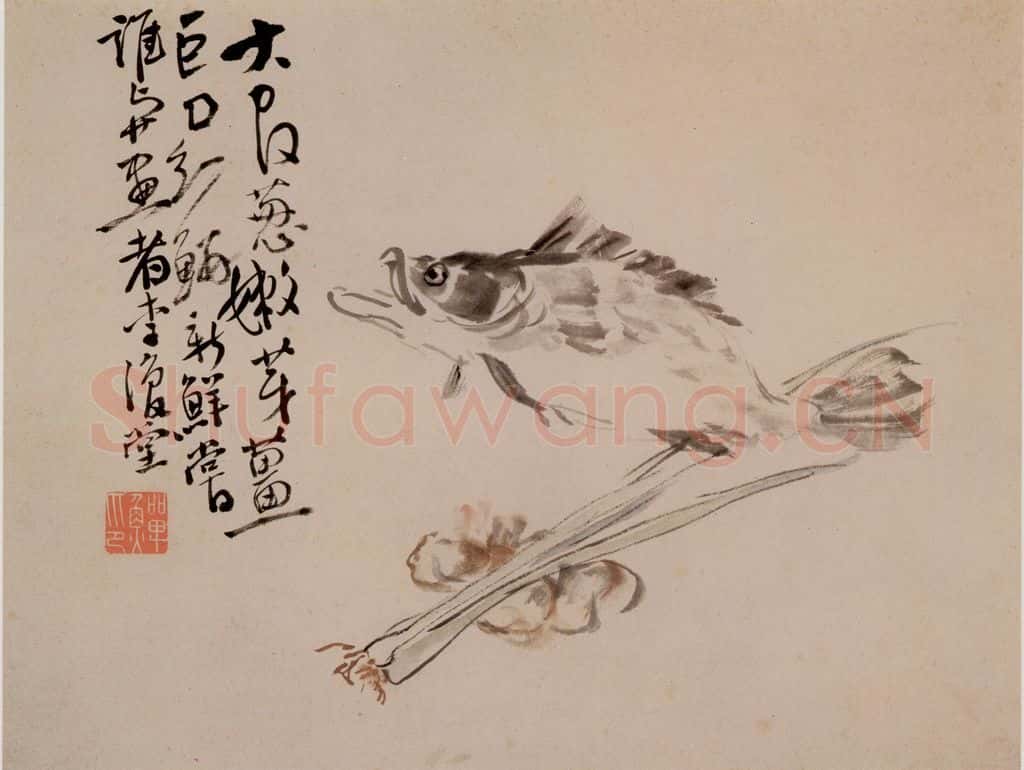 大官葱嫩芽薑
巨口細鱗新鮮嘗
誰與畫者李復堂
Shufawang.CN